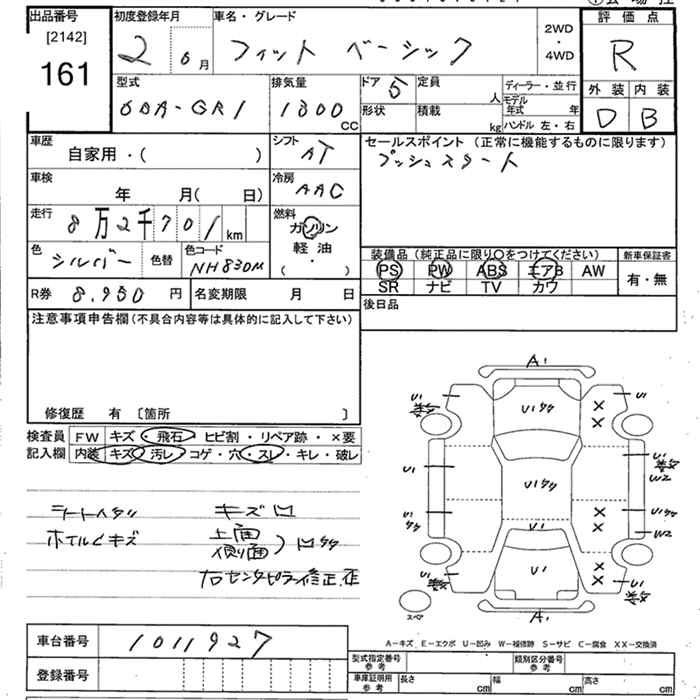 出品番号
[2142]
161
初度登録年月
2 6月
車名・グレード
フィット ベーシック
2WD
・
4WD
評価点
R
外装 内装
D B
型式
6BA-GR1
排気量
1300 CC
ドア 5
形状
定員 人
積載 kg
ディーラー・並行
モデル年式 年
ハンドル 左・右
車歴
自家用・( )
シフト
AT
セールスポイント(正常に機能するものに限ります)
プッシュスタート
車検
年 月( 日)
冷房
AAC
走行
8万2千701 km
燃料
ガソリン
軽油
( ・ )
色 シルバー 色替
色コード
NH830M
装備品(純正品に限り○をつけてください)
PS PW ABS エアB AW
SR ナビ TV カワ
新車保証書
有・無
R券 8,950 円
名変期限 月 日
後日品
注意事項申告欄(不具合内容等は具体的に記入して下さい)
修復歴 有 〔箇所 〕
検査員記入欄
FW キズ・飛石・ヒビ割・リペア跡・×要
内装 キズ・汚レ・コゲ・穴・スレ・キレ・破レ
シートヘタリ キズ凹
ホイルCキズ 上面
側面)凹タタ
右センタピラ修正歪
A1
U1タタ
U1
U1タタ
U1
U1
A1
U1
U1
U1
タタ
U1
U1
U1
W2
U1タタ
W2
U1
スペア
A-キズ E-エクボ U-凹み W-補修跡 S-サビ C-腐食 XX-交換済
車台番号 1011927
登録番号
型式指定番号
参考
類別区分番号
参考
車庫証明用
参考
長さ cm 幅 cm 高さ cm